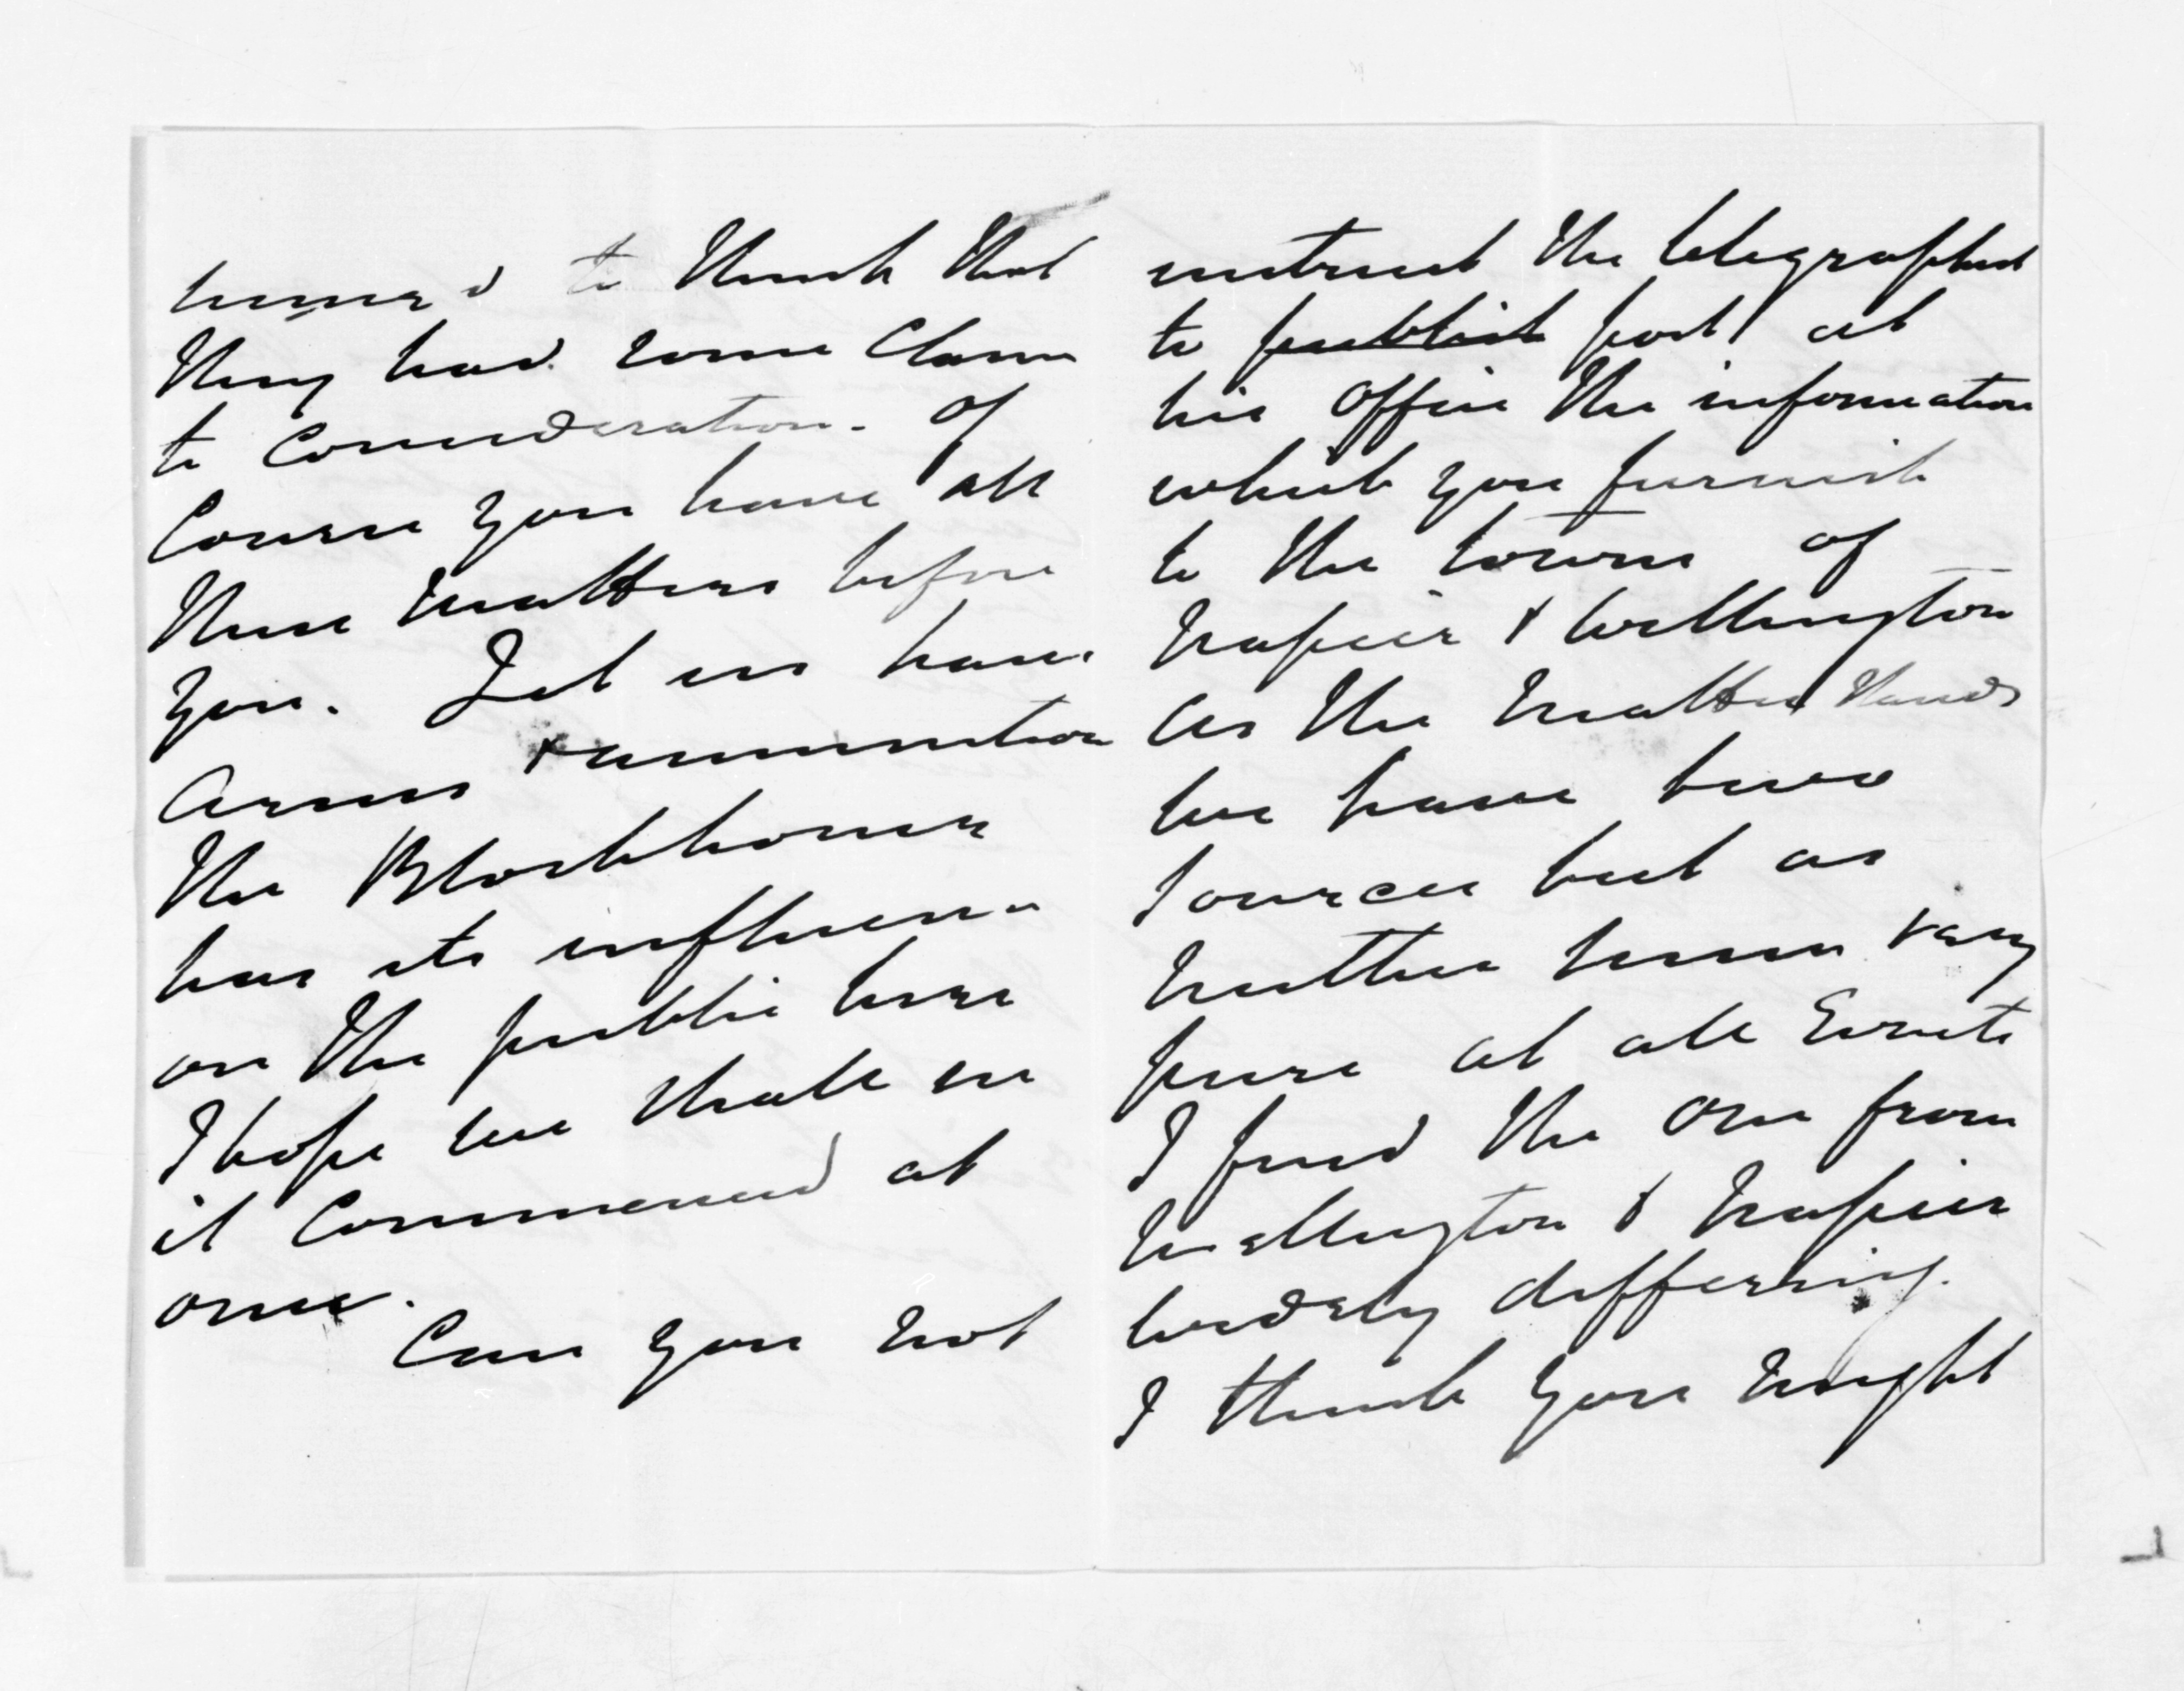 seemed to think that
they had some claim
to consideration. Of
Course you have all
these matters before
you. Let us have
Arms & ammunition
the Blockhouse
has its influence
on the public here
I hope we shall see
it Commenced at
once.
Can you not
instruct the telegraphist
to publish post at
his Office the information
which you furnish
to the towns of
Napier & Wellington
As the matter stands
we have two
sources but as
neither seem very
pure at all Events
I find the one from
Wellington & Napier
widely differing.
I think you might